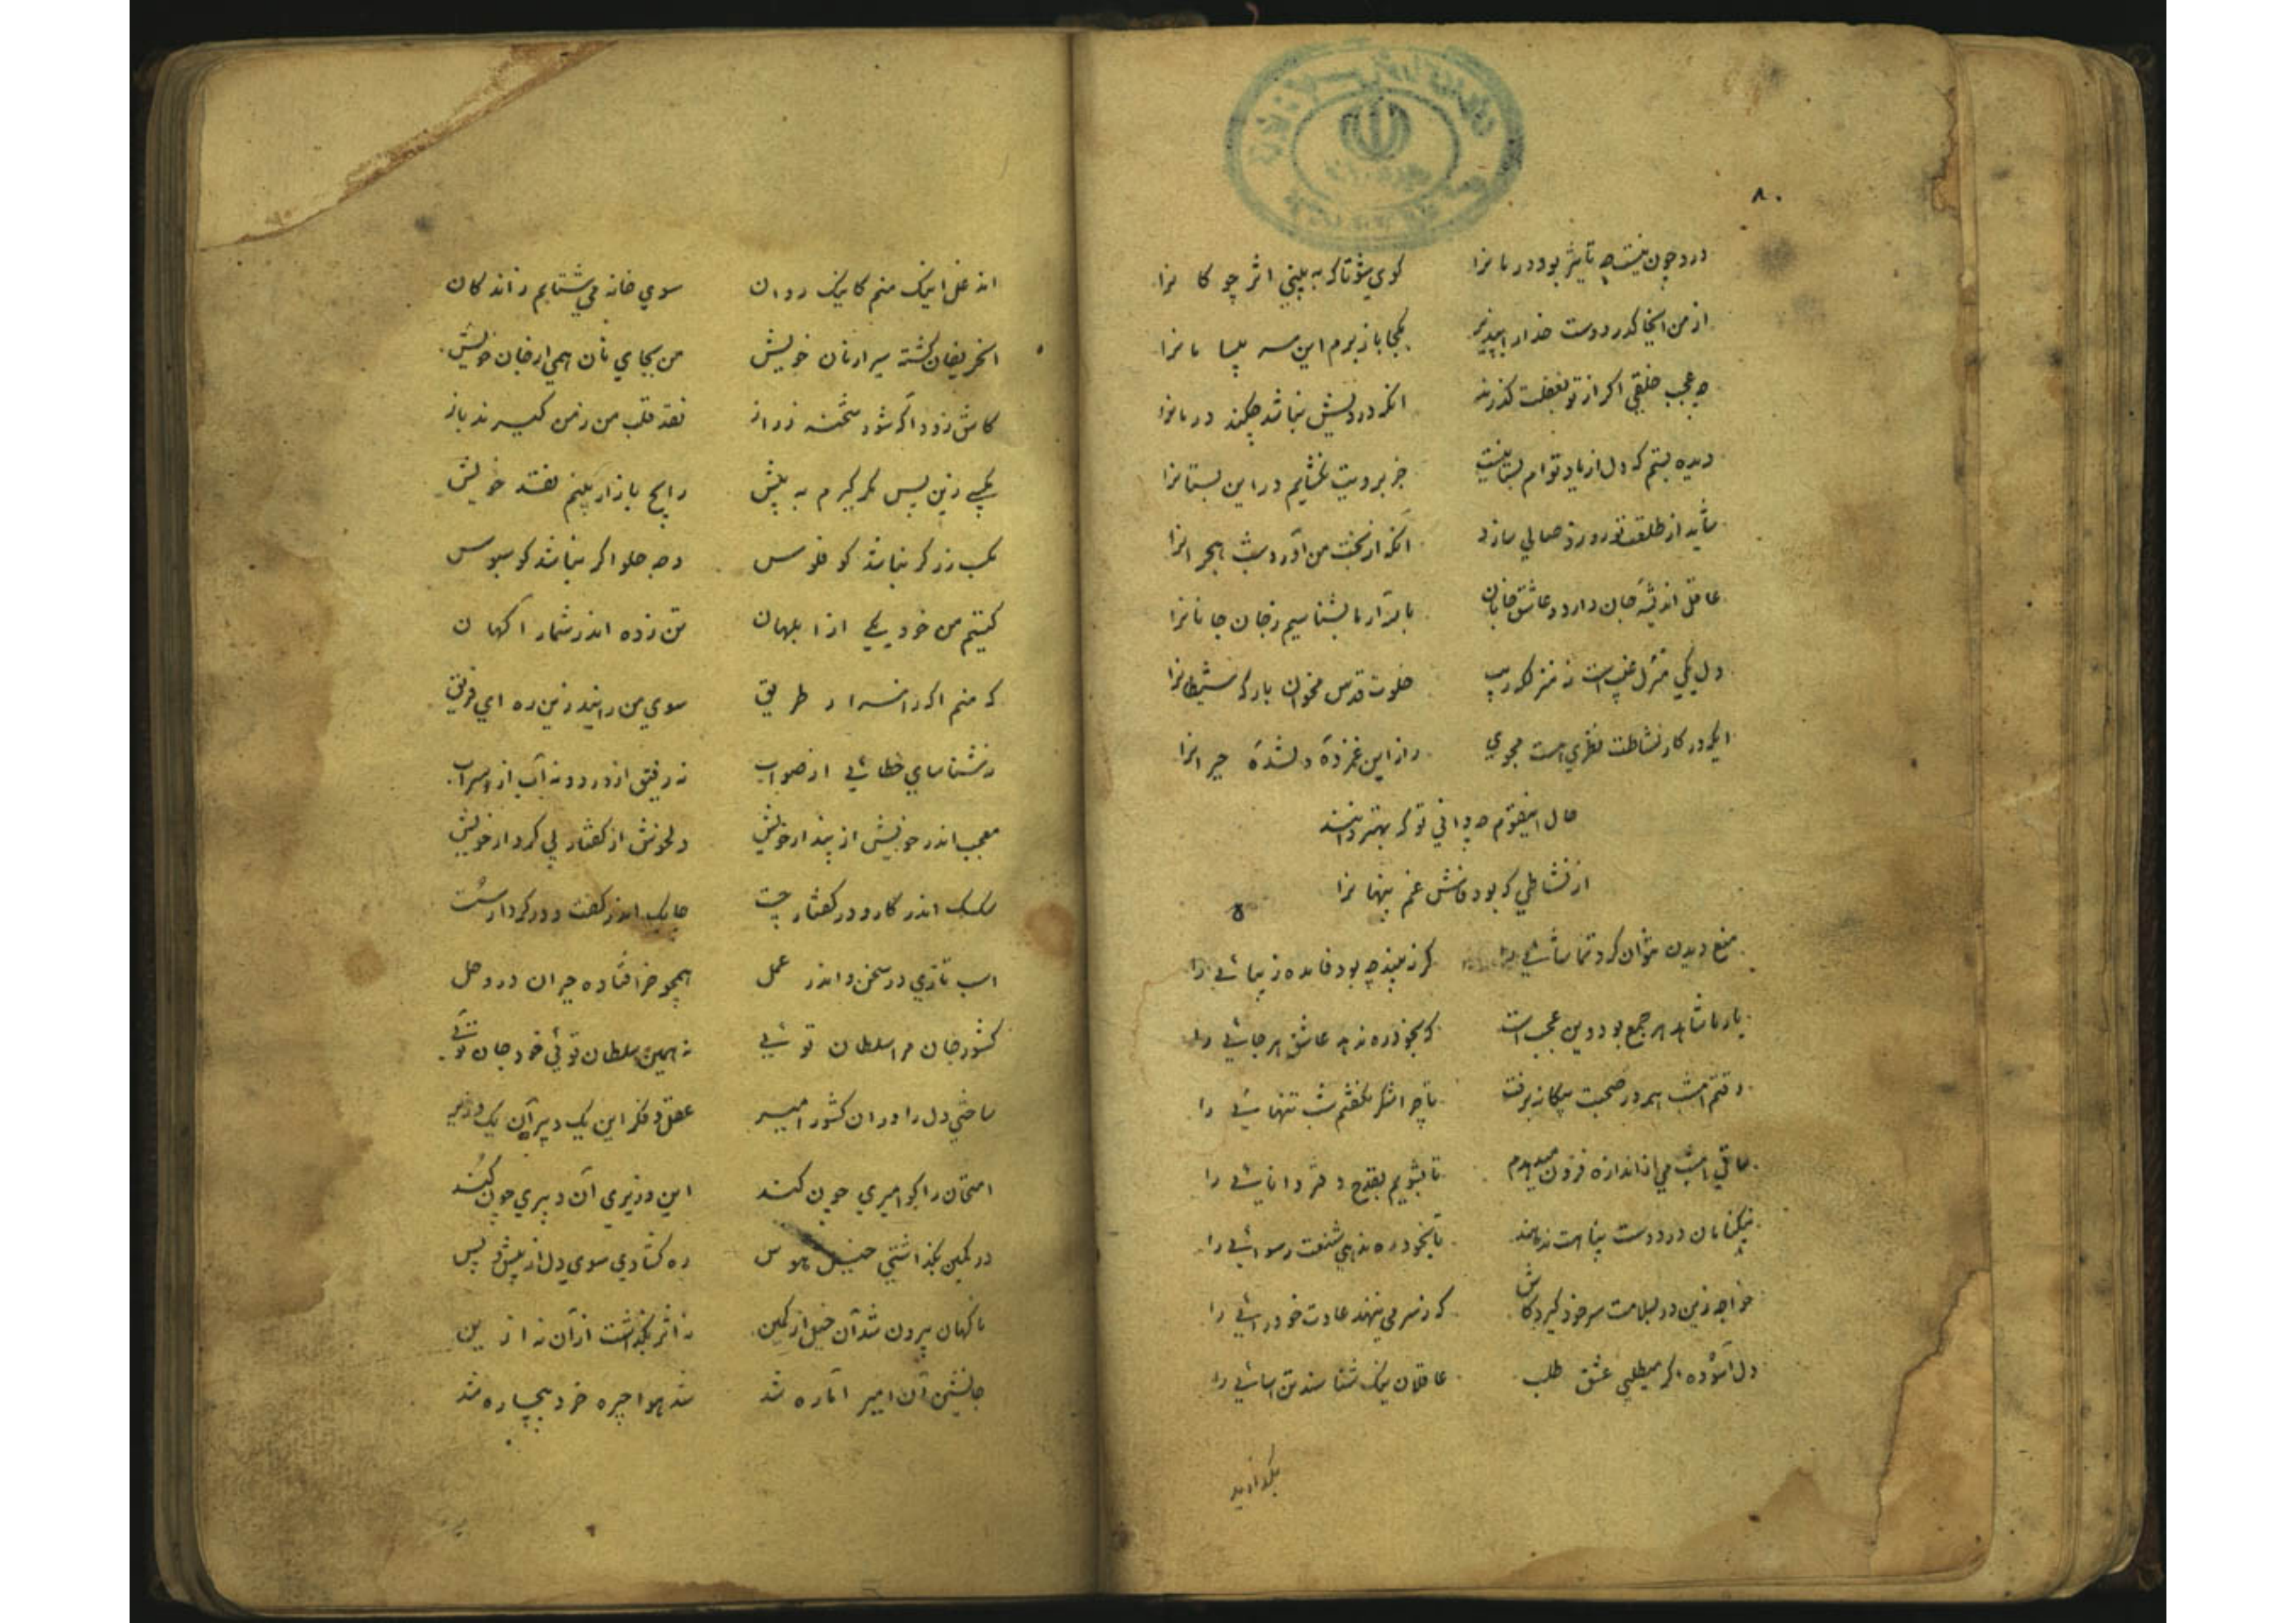 ۸۰
درد چون نیست چه تاثیر بود درمانرا گوی شو تا که به بینی اثر چوگانرا
از من اینجا گذر دوست خدا را مپذیر بکجا باز برم این سر بیسامانرا
چه عجب خلقی اگر از تو بغفلت گذرند آنکه دردیش نباشد چکند درمانرا
دیده بستم که دل از یاد توام بستانیست جز برویت نگشایم در این بستانرا
شاید از طلعت تو روز وصالی سازد آنکه از بخت من آورد شب هجرانرا
عاقل اندیشه جان دارد و عاشق جانان باری آریا بشناسیم ز جان جانانرا
دل یکی منزل غیب است نه منزلگه ریب خلوت قدس مخوان بارگه شیطانرا
ایکه در کار نشاطت نظری هست مجوی راز این غمزده دلشده حیرانرا
حال اینقوم چه دانی تو که بهتر دانند
از نشاطی که بود فاش غم پنهانرا
منع دیدن نتوان کرد تماشائی را گر نه بیند چه بود فایده زیبائی را
یار با شاهد هر جمع بود وین عجب است که بخود ره ندهد عاشق هر جائی را
وقتم امشب همه در صحبت بیگانه برفت تا چرا شکر نگفتم شب تنهائی را
ساقی امشب می از اندازه فزون میدهدم تا بشویم بقدح دفتر دانائی را
نیکنامان در دوست پناهت ندهند تا بخود ره ندهی شنعت رسوائی را
خواجه زین در بسلامت سر خود گیرد کاش که ز سر می ننهد عادت خودرائی را
دل آسوده اگر میطلبی عشق طلب عاقلان نیک شناسند تن آسائی را
اندغل اینک منم کاینک روان سوی خانه می شتابم زاند کان
آنحریفان گشته سیر از نان خویش من بجای نان همی از جان خویش
کاش زود اگه شود شحنه ز راز نقد قلب من ز من گیرند باز
کسب زر گر نباشد کو فلوس وجه حلوا گر نباشد کو سبوس
کیستم من خود یکی از ابلهان تن زده اندر شمار آگهان
که منم آگه ز اسرار طریق سوی من رانید زین ره ای فریق
نشناسای خطائی از صواب نه رفیق از دزد و نه آب از سراب
معجب اندر خویش از پندار خویش دلخوش از گفتار بی کردار خویش
سک اندر کار و در گفتار چست چابک اندر گفت و در کردار سست
اسب تازی در سخن و اندر عمل همچو خر افتاده حیران در وحل
کشور جان مر اسلطان توئی نه همین سلطان توئی خود جان توئی
ساختی دل را در ان کشور امیر عقل و فکر این یک دبیر آن یک وزیر
امتحان را کو امیری چون کند این وزیری آن دبیری چون کند
در کمین بگذاشتی خیل هوس ره گشادی سوی دل از پیش و پس
ناگهان بیرون شد آن خیل از کمین نه اثر بگذاشت از آن نه از این
جانشین آن امیر اماره شد شد هوا چیره خرد بیچاره شد